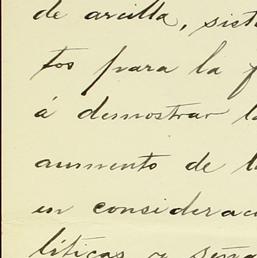 de arcilla, sist
tos para la f
á demostrar l
aumento de l
en considerac
líticas y seña